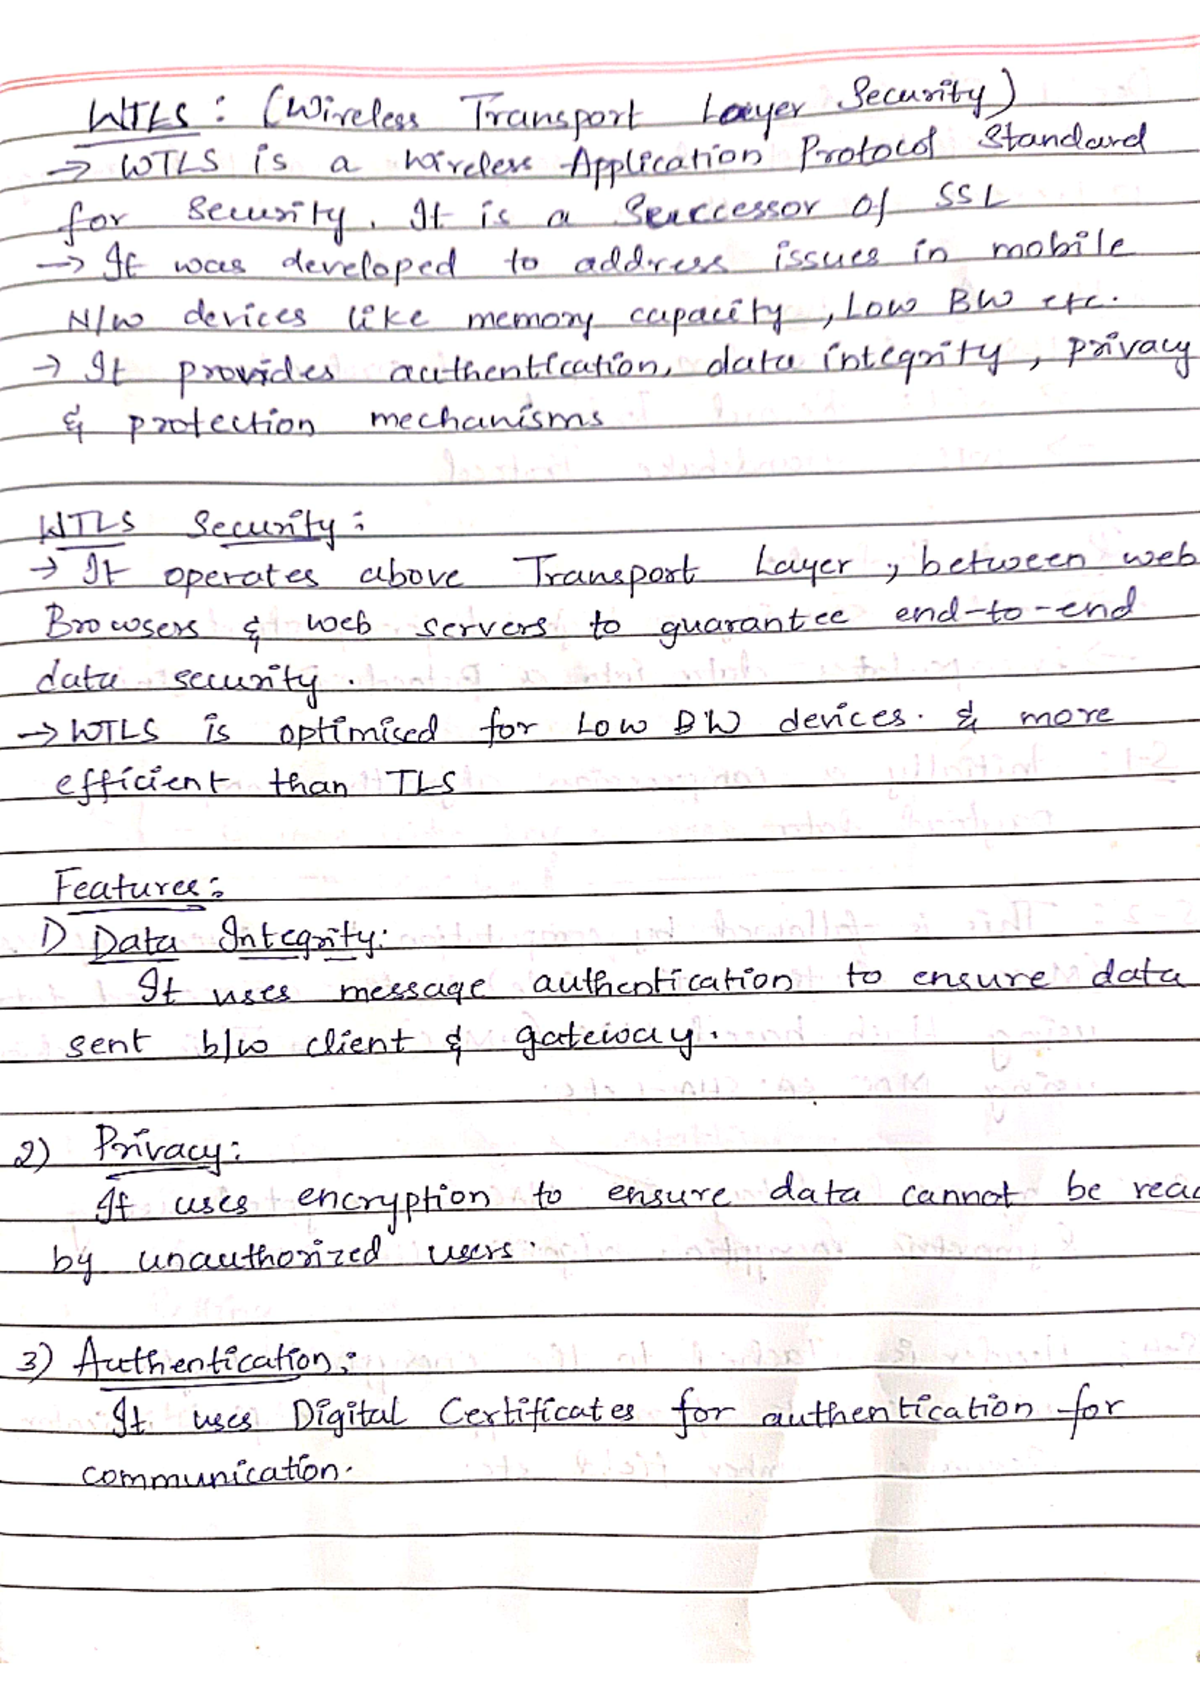 WTLS : (Wireless Transport Layer Security)
→ WTLS is a wireless Application Protocol Standard
for security. It is a Successor of SSL
→ It was developed to address issues in mobile
N/W devices like memory capacity, Low BW etc.
→ It provides authentication, data integrity, privacy
& protection mechanisms
WTLS Security:
→ It operates above Transport Layer, between web
Browsers & web servers to guarantee end-to-end
data security.
→ WTLS is optimised for Low BW devices. & more
efficient than TLS
Features:
1) Data Integrity:
It uses message authentication to ensure data
sent b/w client & gateway.
2) Privacy:
It uses encryption to ensure data cannot be read
by unauthorized users.
3) Authentication:
It uses Digital Certificates for authentication for
communication.